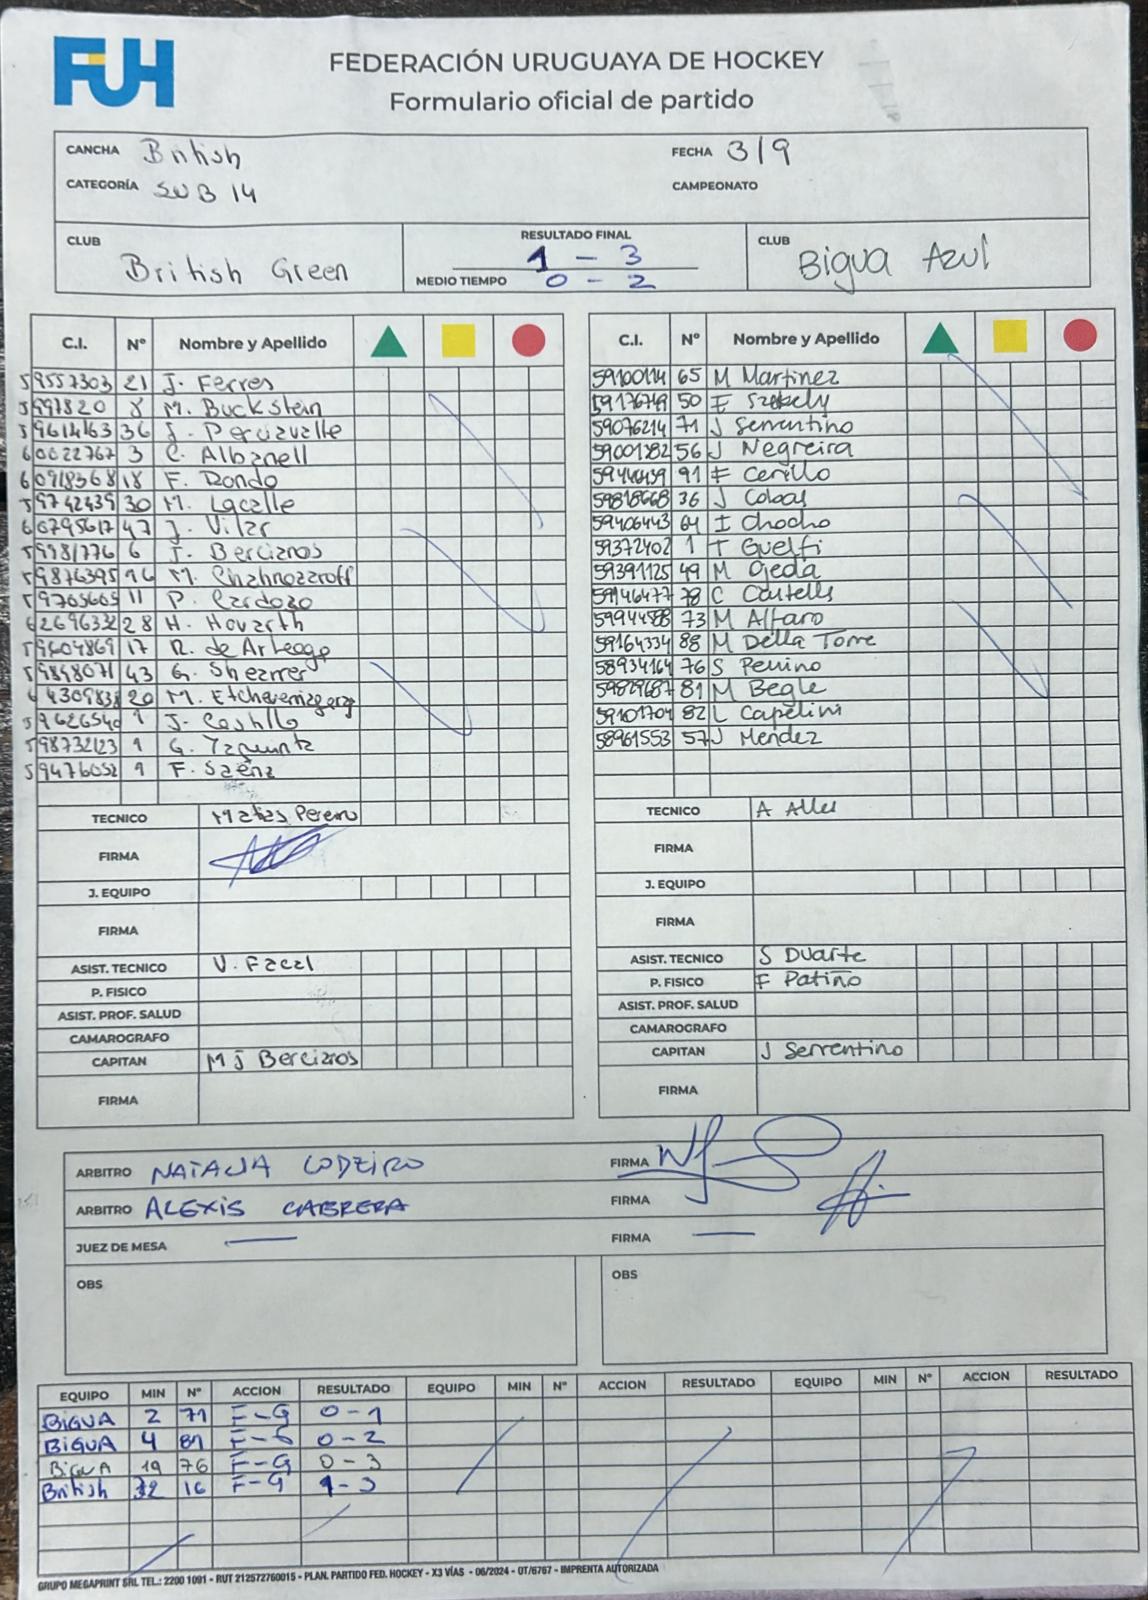 FUH
FEDERACIÓN URUGUAYA DE HOCKEY
Formulario oficial de partido
CANCHA British
FECHA 3/9
CATEGORÍA SUB 14
CAMPEONATO
CLUB British Green
RESULTADO FINAL 1 - 3
MEDIO TIEMPO 0 - 2
CLUB Bigua Azul
C.I. Nº Nombre y Apellido
59557303 21 J. Ferres
5991820 8 M. Buckstein
59614163 36 J.
60022767 3 C. Albanell
60918368 18 F. Dondo
59742439 30 M. Lacalle
60795617 47 J. Vilar
59981776 6 J. Bercianos
59876395 16 M.
59705605 11 P. Cardozo
62696332 28 H. Howarth
59604869 17 R. de Arteaga
59848071 43 G. Shearer
64309838 20 M.
59626540 1 J. Castillo
598732123 1 G.
59476052 1 F. Saenz
TECNICO Matias Pereiro
FIRMA
J. EQUIPO
FIRMA
ASIST. TECNICO V. Facal
P. FISICO
ASIST. PROF. SALUD
CAMAROGRAFO
CAPITAN M J Bercianos
FIRMA
C.I. Nº Nombre y Apellido
59100114 65 M Martinez
59176749 50 F Szekely
59076214 71 J Serrentino
59001282 56 J Negreira
59446439 91 F Cerillo
59818668 36 J
59406443 64 I Chocho
59372402 1 T Guelfi
59391125 49 M Ojeda
59146477 78 C Castells
59944588 73 M Alfaro
59164334 88 M Della Torre
58934164 76 S Perrino
59829687 81 M Begle
59101704 82 L Capelini
58961553 57 J Mendez
TECNICO A Aller
FIRMA
J. EQUIPO
FIRMA
ASIST. TECNICO S Duarte
P. FISICO F Patiño
ASIST. PROF. SALUD
CAMAROGRAFO
CAPITAN J Serrentino
FIRMA
ARBITRO NATALIA LODEIRO FIRMA
ARBITRO ALEXIS CABRERA FIRMA
JUEZ DE MESA — FIRMA —
OBS
OBS
EQUIPO MIN Nº ACCION RESULTADO EQUIPO MIN Nº ACCION RESULTADO EQUIPO MIN Nº ACCION RESULTADO
BIGUA 2 71 F-G 0-1
BIGUA 4 81 F-G 0-2
BIGUA 19 76 F-G 0-3
British 32 16 F-G 1-3
GRUPO MEGAPRINT SRL TEL.: 2200 1091 - RUT 212572760015 - PLAN. PARTIDO FED. HOCKEY - X3 VÍAS - 06/2024 - OT/6767 - IMPRENTA AUTORIZADA